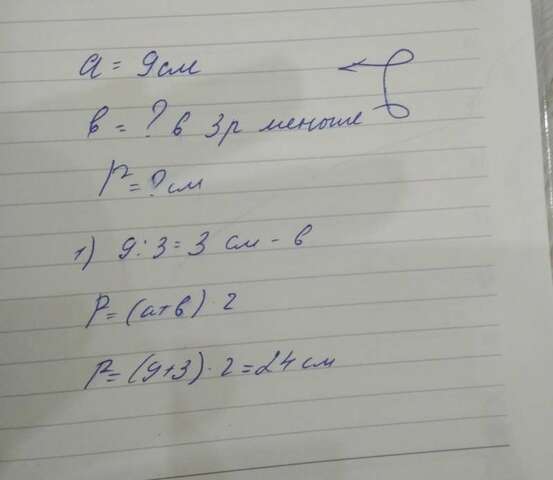 a = 9см
в = ? в 3р меньше
P = ? см
1) 9 : 3 = 3 см - в
P = (a+в) · 2
P = (9+3) · 2 = 24 см